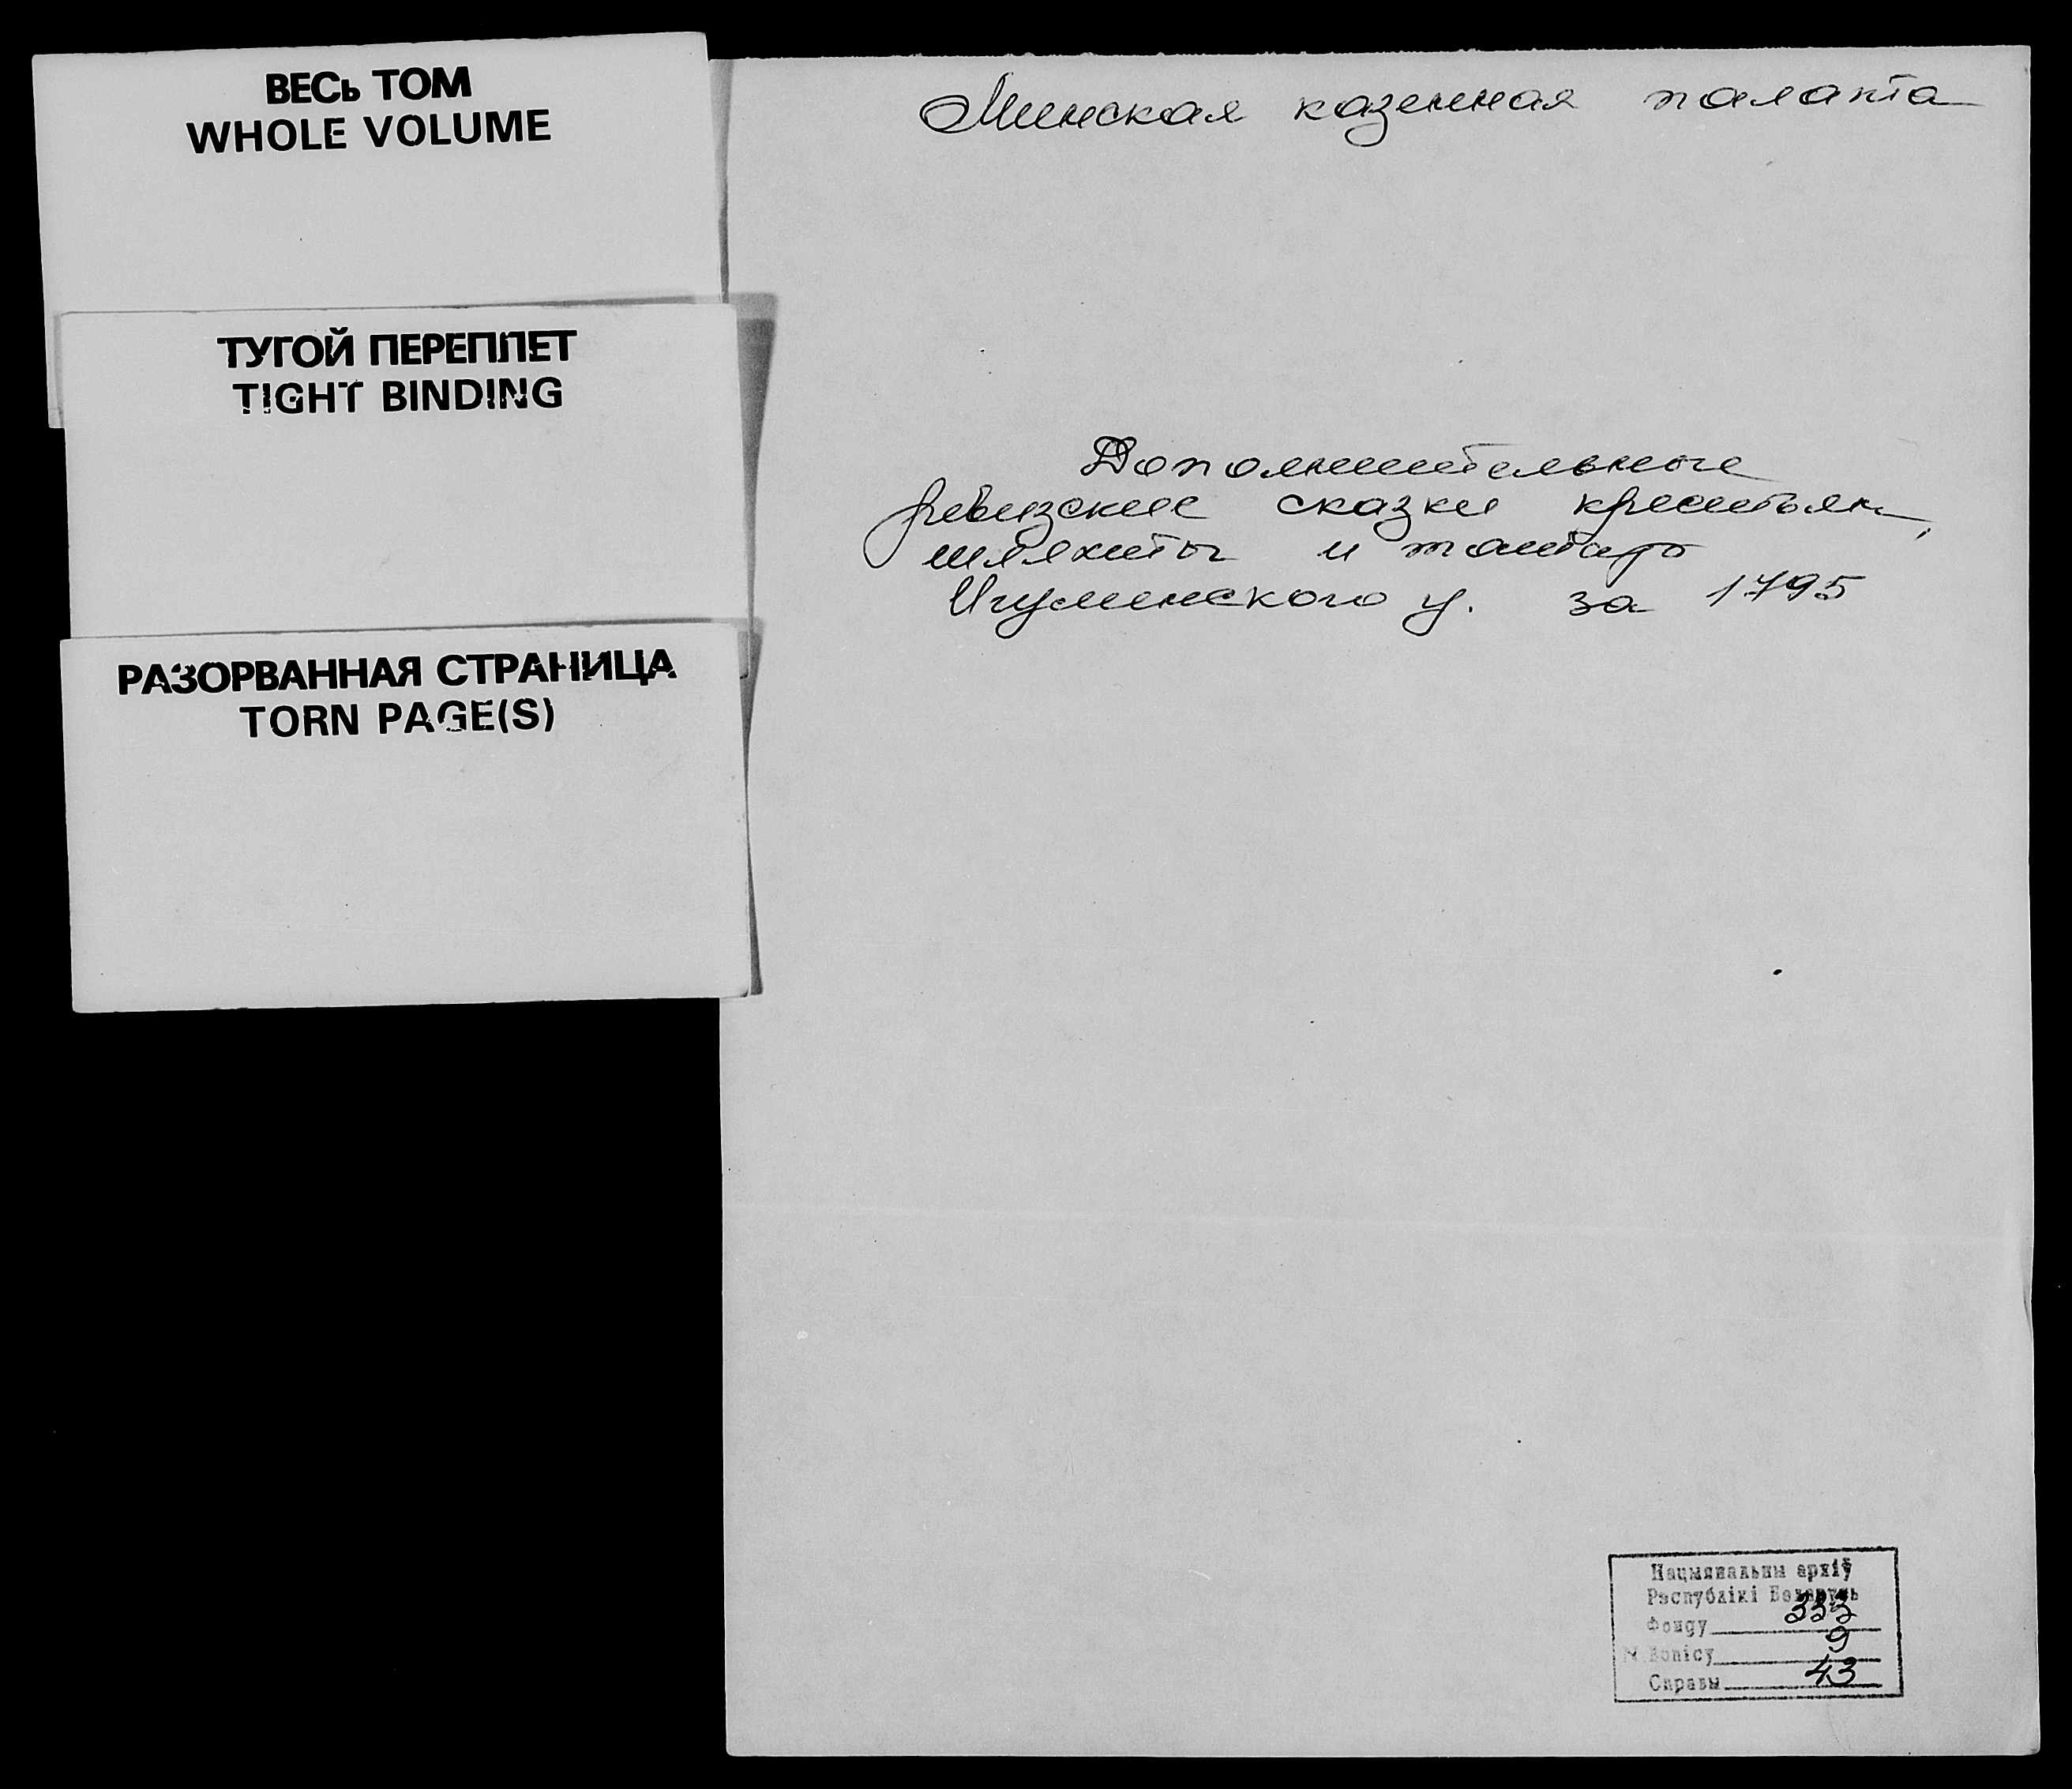 ВЕСЬ ТОМ
WHOLE VOLUME
ТУГОЙ ПЕРЕПЛЕТ
TIGHT BINDING
РАЗОРВАННАЯ СТРАНИЦА
TORN PAGE(S)
Минская казенная палата
Дополнительные
ревизские сказки крестьян,
шляхты и татар
Игуменского у. за 1795
Нацыянальны архіў
Рэспублікі Беларусь
Фонду 333
Вопісу 9
Справы 43